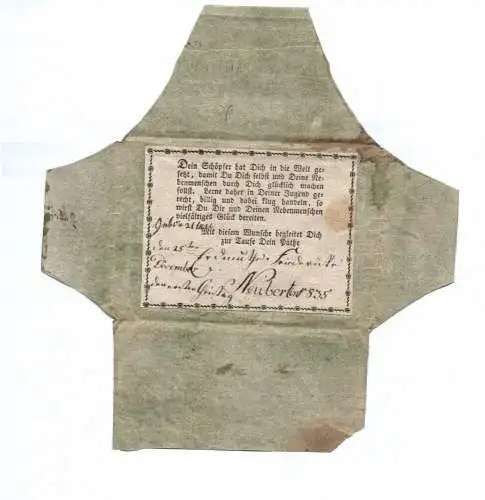 Dein Schöpfer hat Dich in die Welt ge-
setzt, damit Du Dich selbst und Deine Ne-
benmenschen durch Dich glücklich machen
sollst. Lerne daher in Deiner Jugend ge-
recht, billig und dabei klug handeln, so
wirst Du Die und Deinen Nebenmenschen
vielfältiges Glück bereiten.
Mit diesem Wunsche begleitet Dich
zur Taufe Dein Pathe
den 25
Neubert 1835